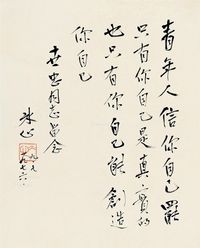 青年人信你自己罢
只有你自己是真实的
也只有你自己能创造
你自己
世忠同志留念
冰心
一九八九
七 六